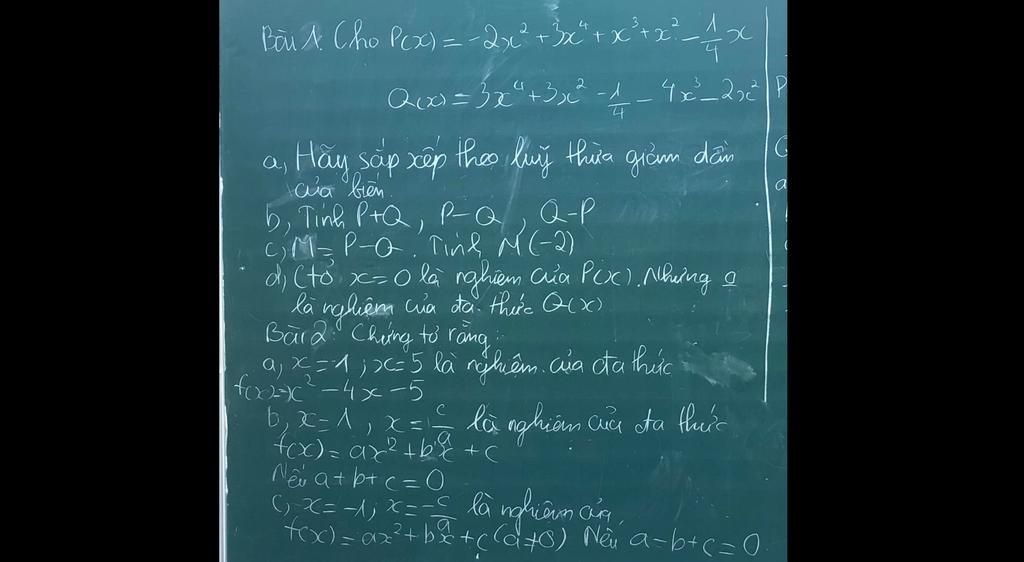 Bài 1. Cho P(x) = -2x² + 3x⁴ + x³ + x² - 1/4 x
Q(x) = 3x⁴ + 3x² - 1/4 - 4x³ - 2x²
P
a, Hãy sắp xếp theo luỹ thừa giảm dần
của biến
b, Tính P+Q, P-Q, Q-P
c, M = P-Q. Tính M(-2)
d, C tỏ x=0 là nghiệm của P(x). Nhưng 0
là nghiệm của đa thức Q(x)
Bài 2 Chứng tỏ rằng
a, x=-1; x=5 là nghiệm của đa thức
f(x)=x² - 4x - 5
b, x=1, x = c/a là nghiệm của đa thức
f(x) = ax² + bx + c
Nếu a+b+c=0
c, x=-1; x = -c/a là nghiệm của
f(x) = ax² + bx + c (a≠0) Nếu a-b+c=0